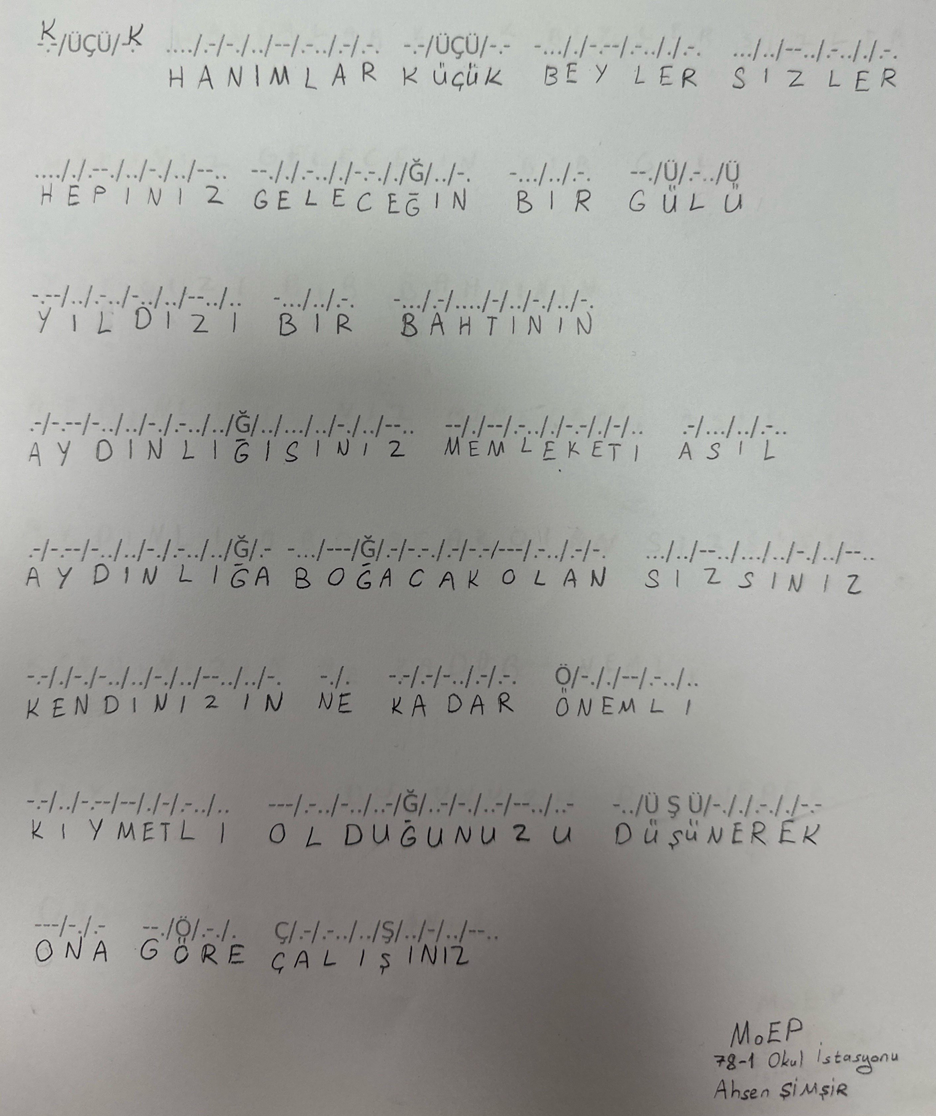 K/ÜÇÜ/K ..../.-/-./../--/.-../.-/.-. -.-/ÜÇÜ/-.- -..././-.--/.-.././.-. .../../--../.-.././.-.
HANIMLAR KÜÇÜK BEYLER SIZLER
...././.--./../-./../--.. --././.-.././-.-././Ğ/../-. -.../../.-. --./Ü/.-../Ü
HEPINIZ GELECEĞIN BIR GÜLÜ
-.--/../.-../-../../--../.. -.../../.-. -.../.-/..../-/../-./../-.
YILDIZI BIR BAHTININ
.-/-.--/-../../-./.-../../Ğ/../.../../-./../--.. --/./--/.-.././-.-/./-/.. .-/.../../.-..
AYDINLIĞISINIZ MEMLEKETI ASIL
.-/-.--/-../../-./.-../../Ğ/.- -.../---/Ğ/.-/-.-./.-/-.-/---/.-../.-/-. .../../--../.../../-./../--..
AYDINLIĞA BOĞACAK OLAN SIZSINIZ
-.-/./-./-../../-./../--../../-. -./. -.-/.-/-../.-/.-. Ö/-././--/.-../..
KENDINIZIN NE KADAR ÖNEMLI
-.-/../-.--/--/./-/.-../.. ---/.-../-../..-/Ğ/..-/-./..-/--../..- -../Ü Ş Ü/-././.-././-.-
KIYMETLI OLDUĞUNUZU DÜŞÜNEREK
---/-./.- --./Ö/.-./. Ç/.-/.-../../Ş/../-./../--..
ONA GÖRE ÇALIŞINIZ
MoEP
78-1 Okul İstasyonu
Ahsen ŞİMŞİR